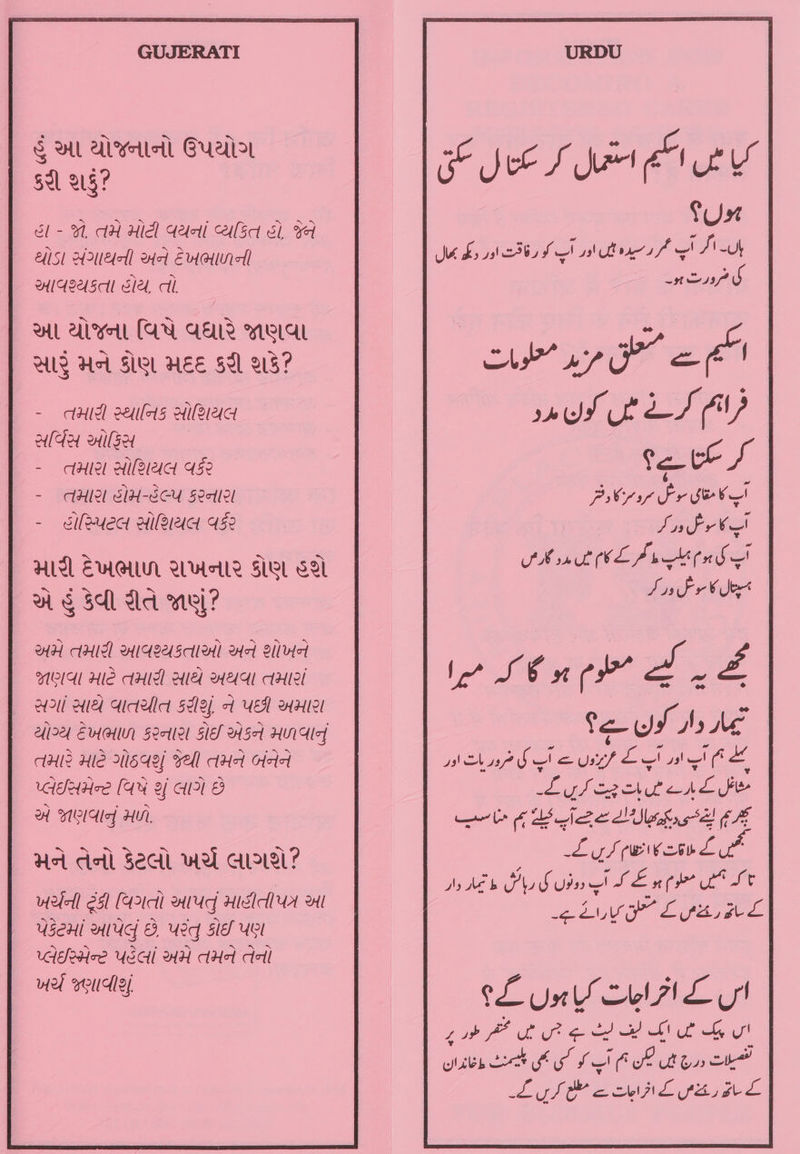 GUJERATI
હું આ યોજનાનો ઉપયોગ
કરી શકું?
હા - જો, તમે મોટી વયનાં વ્યકિત હો, જેને
થોડા સંગાથની અને દેખભાળની
આવશ્યકતા હોય, તો.
આ યોજના વિષે વધારે જાણવા
સારું મને કોણ મદદ કરી શકે?
- તમારી સ્થાનિક સોશિયલ
સર્વિસ ઓફિસ
- તમારા સોશિયલ વર્કર
- તમારા હોમ-હેલ્પ કરનારા
- હોસ્પિટલ સોશિયલ વર્કર
મારી દેખભાળ રાખનાર કોણ હશે
એ હું કેવી રીતે જાણું?
અમે તમારી આવશ્યકતાઓ અને શોખને
જાણવા માટે તમારી સાથે અથવા તમારાં
સગાં સાથે વાતચીત કરીશું, ને પછી અમારા
યોગ્ય દેખભાળ કરનારા કોઈ એકને મળવાનું
તમારે માટે ગોઠવશું જેથી તમને બંનેને
પ્લેઈસમેન્ટ વિષે શું લાગે છે
એ જાણવાનું મળે.
મને તેનો કેટલો ખર્ચ લાગશે?
ખર્ચની ટૂંકી વિગતો આપતું માહીતીપત્ર આ
પેકેટમાં આપેલું છે, પરંતુ કોઈ પણ
પ્લેઈસ્મેન્ટ પહેલાં અમે તમને તેનો
ખર્ચ જણાવીશું.
URDU
کیا میں اسکیم استعمال کر سکتا ل سکتی
ہوں؟
ہاں۔ اگر آپ عمر رسیدہ ہیں اور آپ کو رفاقت اور دیکھ بھال
کی ضرورت ہو۔
اسکیم سے متعلق مزید معلومات
فراہم کرنے میں کون مدد
کر سکتا ہے؟
آپ کا مقامی سوشل سروسز کا دفتر
آپ کا سوشل ورکر
آپ کی ہوم ہیلپ ط گھر کے کام میں مدد گارص
ہسپتال کا سوشل ورکر
مجھے یہ کیسے معلوم ہو گا کہ میرا
تیمار دار کون ہے؟
پہلے ہم آپ اور آپ کے عزیزوں سے آپ کی ضروریات اور
مشاغل کے بارے میں بات چیت کریں گے۔
پھر ہم اپنے کسی دیکھ بھال والے سے جسے آپ کیلئے ہم مناسب
سمجھیں گے ملاقات کا انتظام کریں گے۔
تا کہ ہمیں معلوم ہو سکے کہ آپ دونوں کی رہائش ط تیمار دار
کے ساتھ رہنےص کے متعلق کیا رائے ہے۔
اس کے اخراجات کیا ہوں گے؟
اس پیک میں ایک لیف لیٹ ہے جس میں مختصر طور پر
تفصیلات درج ہیں لیکن ہم آپ کو کسی بھی پلیسمنٹ طخاندان
کے ساتھ رہنےص کے اخراجات سے مطلع کریں گے۔